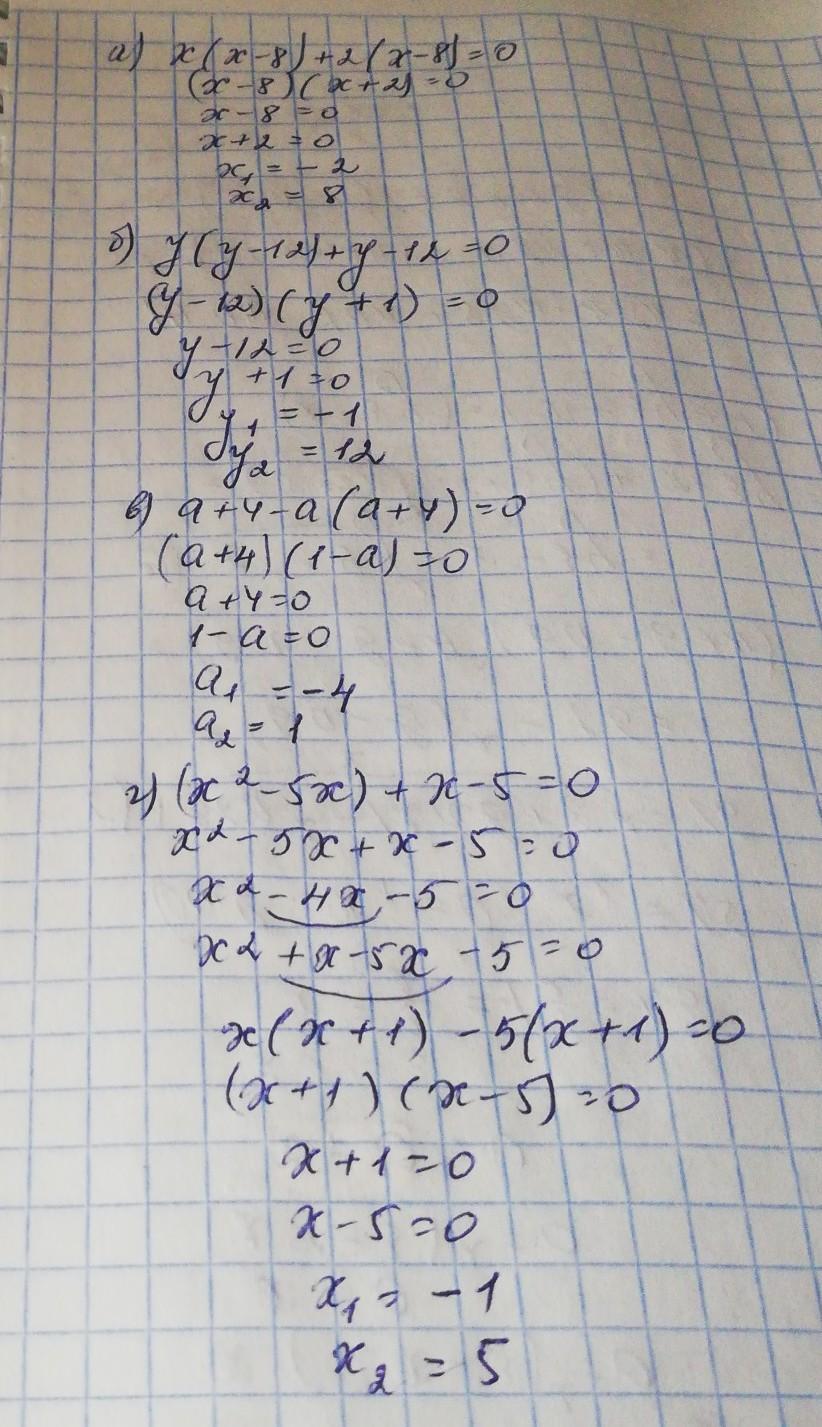 а) x(x-8)+2(x-8)=0
(x-8)(x+2)=0
x-8=0
x+2=0
x₁=-2
x₂=8
б) y(y-12)+y-12=0
(y-12)(y+1)=0
y-12=0
y+1=0
y₁=-1
y₂=12
в) a+4-a(a+4)=0
(a+4)(1-a)=0
a+4=0
1-a=0
a₁=-4
a₂=1
г) (x²-5x)+x-5=0
x²-5x+x-5=0
x²-4x-5=0
x²+x-5x-5=0
x(x+1)-5(x+1)=0
(x+1)(x-5)=0
x+1=0
x-5=0
x₁=-1
x₂=5